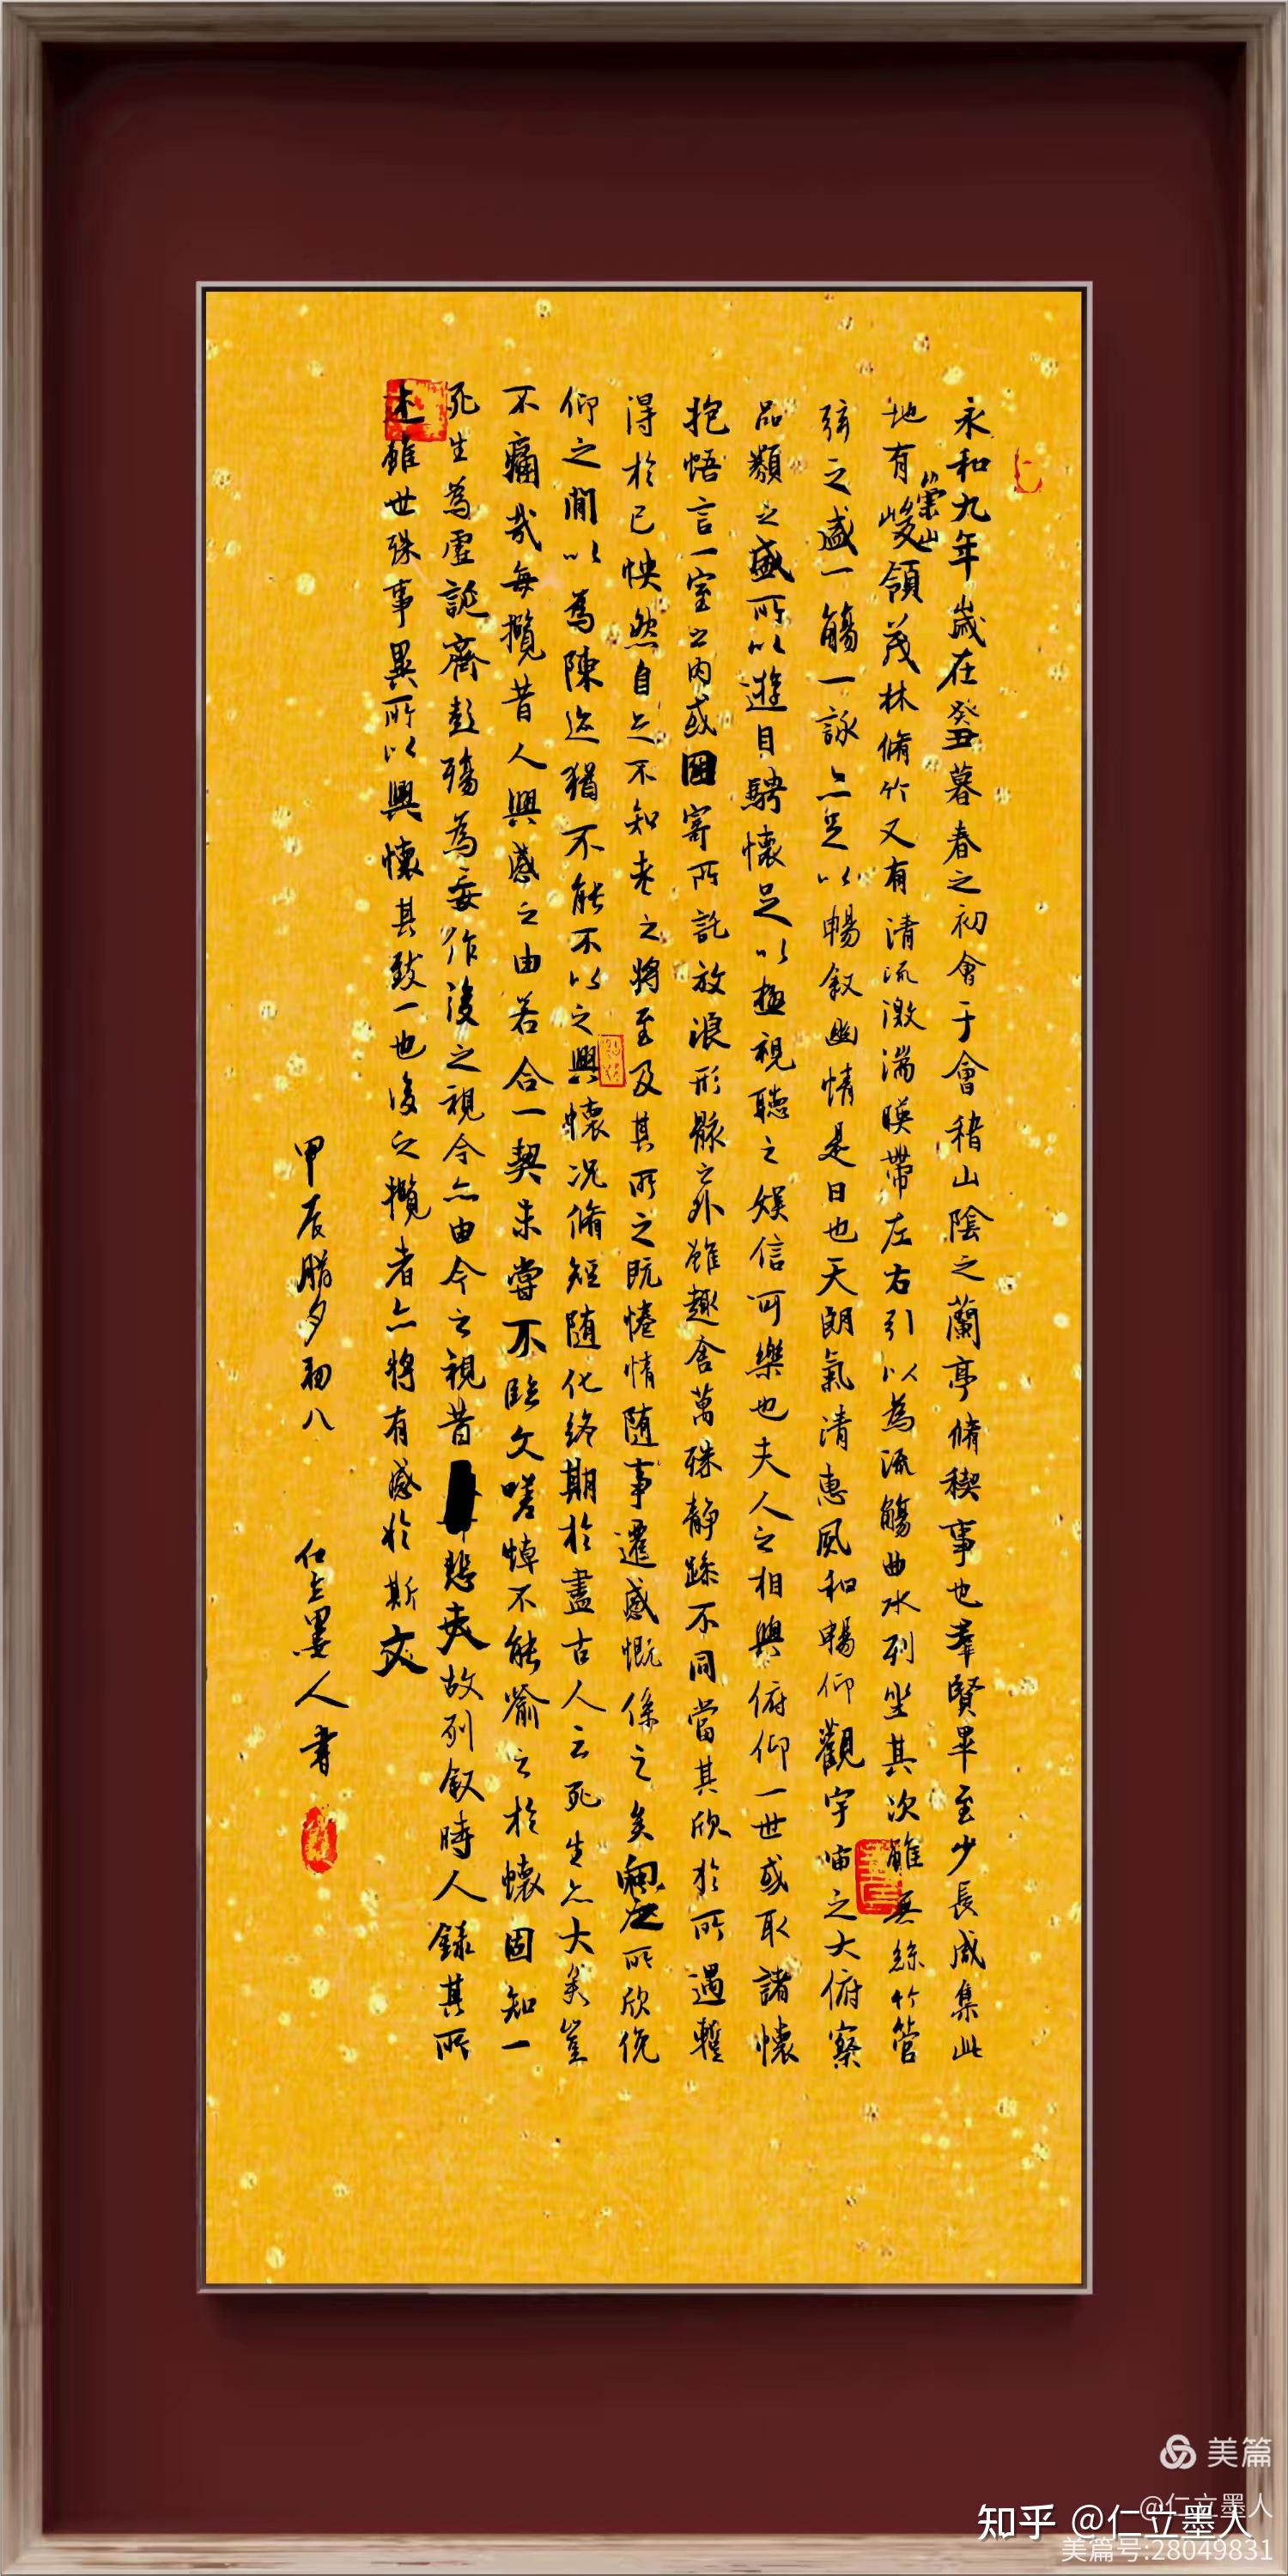 永和九年歲在癸丑暮春之初會于會稽山陰之蘭亭脩稧事也羣賢畢至少長咸集此
地有崇山峻領茂林脩竹又有清流激湍暎帶左右引以為流觴曲水列坐其次雖無絲竹管
弦之盛一觴一詠亦足以暢叙幽情是日也天朗氣清惠風和暢仰觀宇宙之大俯察
品類之盛所以遊目騁懷足以極視聽之娛信可樂也夫人之相與俯仰一世或取諸懷
抱悟言一室之內或因寄所託放浪形骸之外雖趣舍萬殊靜躁不同當其欣於所遇蹔
得於己怏然自足不知老之將至及其所之既惓情隨事遷感慨係之矣向之所欣俛
仰之閒以為陳迹猶不能不以之興懷況脩短隨化終期於盡古人云死生亦大矣豈
不痛哉每攬昔人興感之由若合一契未嘗不臨文嗟悼不能喻之於懷固知一
死生為虛誕齊彭殤為妄作後之視今亦由今之視昔悲夫故列叙時人錄其所
述雖世殊事異所以興懷其致一也後之攬者亦將有感於斯文
甲辰腊月初八 仁立墨人書
美篇
@仁立墨人
知乎 @仁立墨人
美篇号:28049831